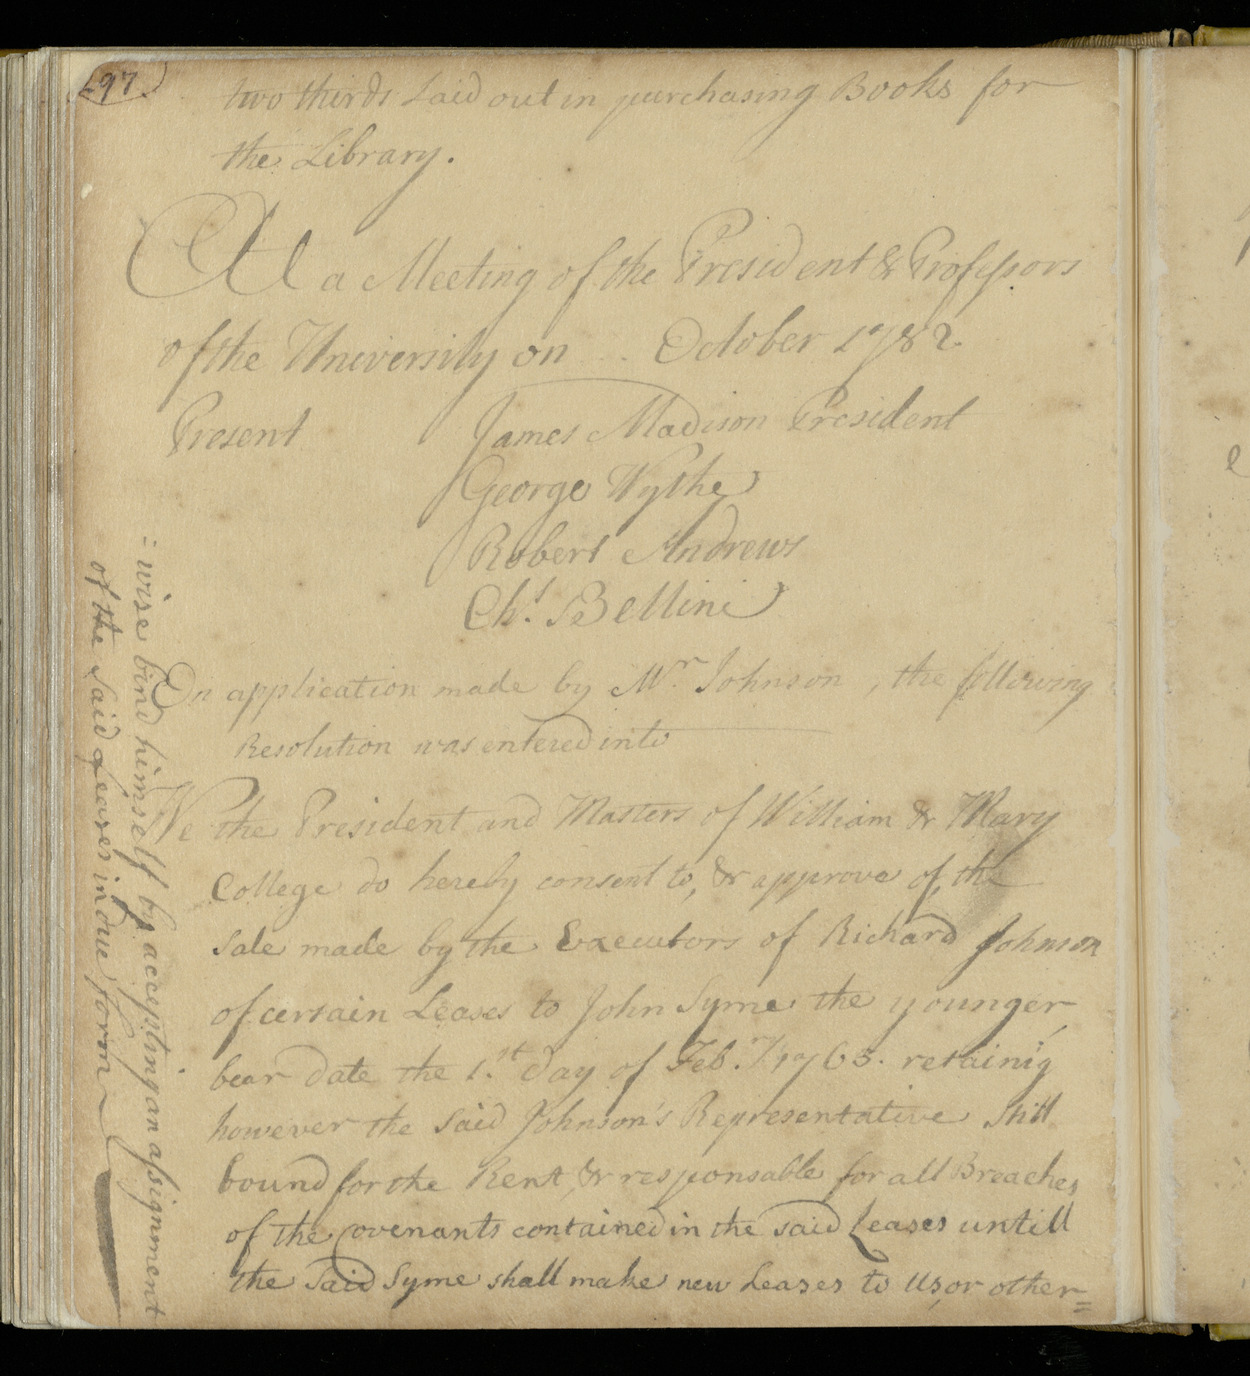 297
two thirds Laid out in purchasing Books for
the Library.
At a Meeting of the President & Professors
of the University on .. October 1782.
Present James Madison President
George Wythe
Robert Andrews
Chs. Bellini
On application made by Mr. Johnson, the following
Resolution was entered into
We the President and Masters of William & Mary
College do hereby consent to, & approve of, the
Sale made by the Executors of Richard Johnson
of certain Leases to John Syme the younger,
bear date the 1.st day of Feb.ry 1763. retaini'g
however the said Johnson's Representative still
bound for the Rent, & responsable for all Breaches
of the Covenants contained in the said Leases untill
the said Syme shall make new Leases to Us, or other=
=wise bind himself by accepting an assignment
of the said Leases in due form